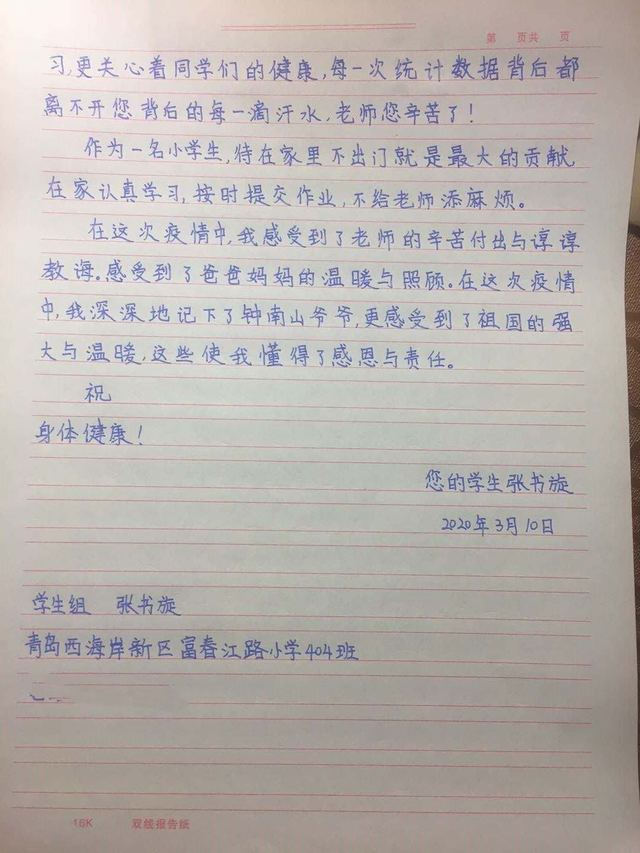 第 页共 页
习,更关心着同学们的健康,每一次统计数据背后都
离不开您背后的每一滴汗水,老师您辛苦了!
作为一名小学生,待在家里不出门就是最大的贡献
在家认真学习,按时提交作业,不给老师添麻烦。
在这次疫情中,我感受到了老师的辛苦付出与谆谆
教诲。感受到了爸爸妈妈的温暖与照顾。在这次疫情
中,我深深地记下了钟南山爷爷,更感受到了祖国的强
大与温暖,这些使我懂得了感恩与责任。
祝
身体健康!
您的学生张书旋
2020年3月10日
学生组 张书旋
青岛西海岸新区富春江路小学404班
16K 双线报告纸